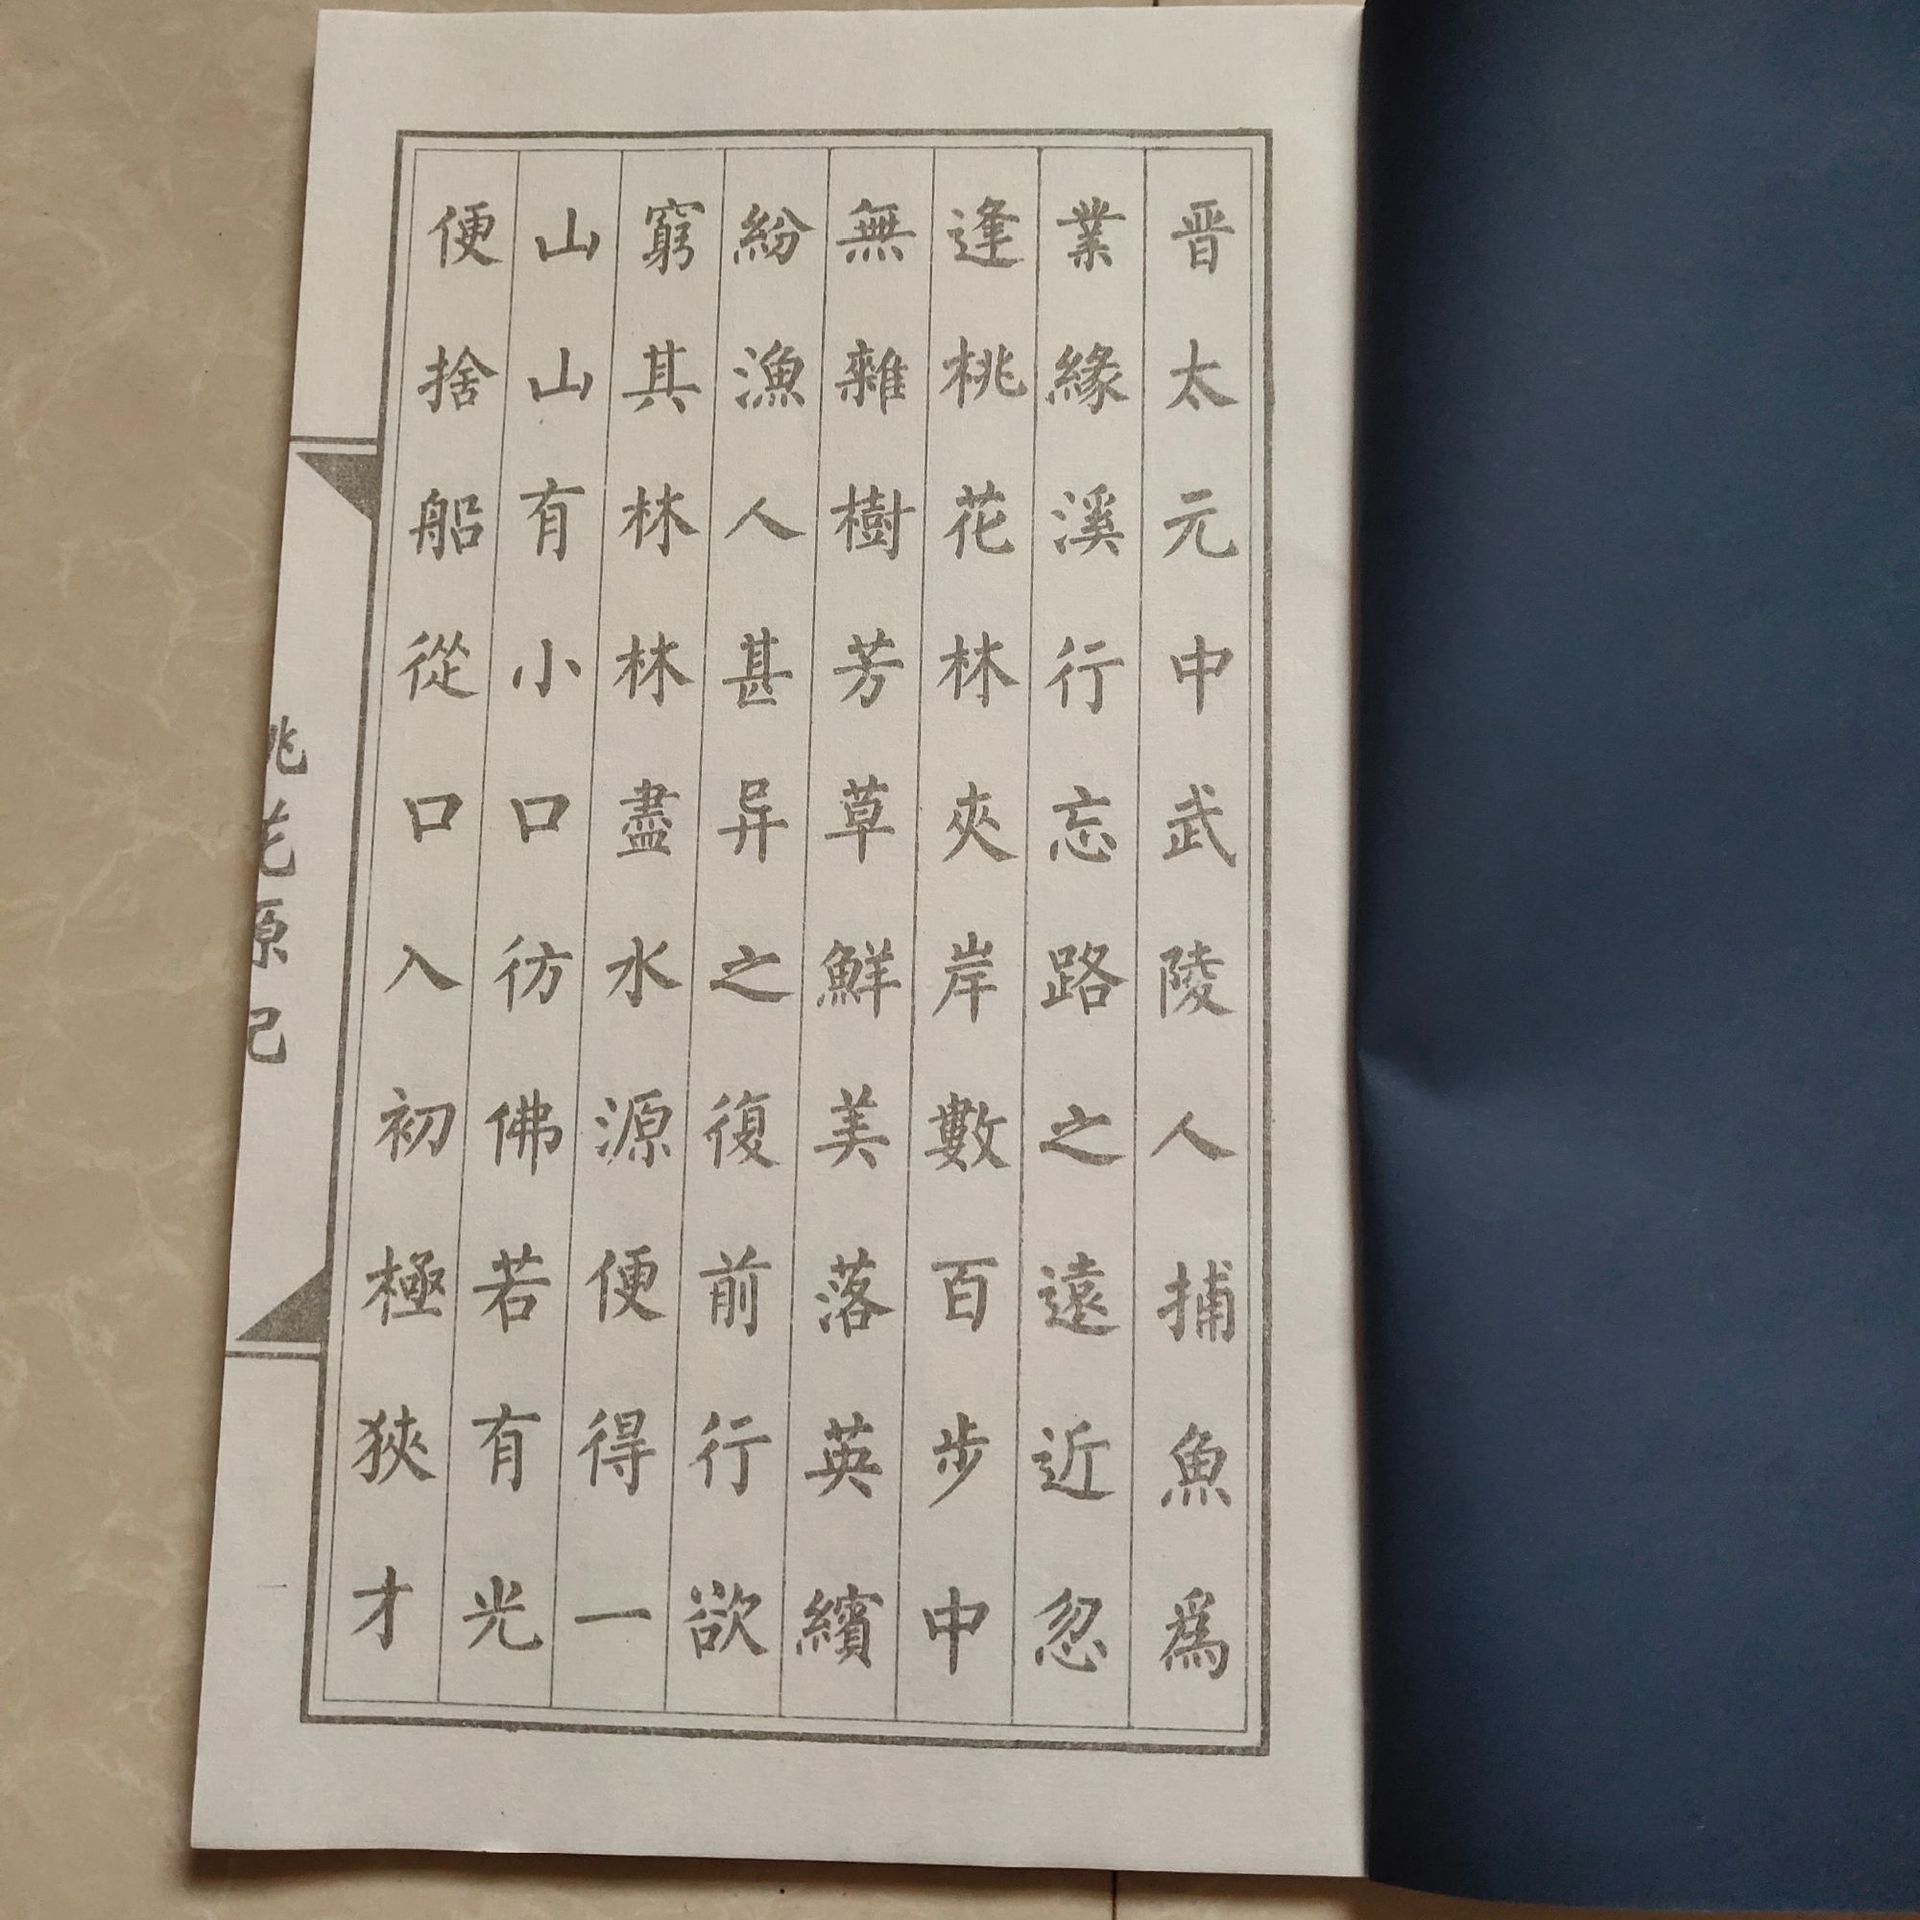 晋太元中武陵人捕魚爲
業緣溪行忘路之遠近忽
逢桃花林夾岸數百步中
無雜樹芳草鮮美落英繽
紛漁人甚异之復前行欲
窮其林林盡水源便得一
山山有小口彷佛若有光
便捨船從口入初極狹才
桃花源記
一